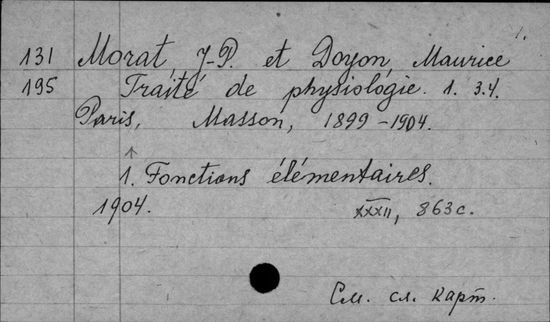 1.
131 Morat, J-P. et Doyon, Maurice
195 Traité de physiologie. 1. 3.4.
Paris, Masson, 1899-1904.
1. Fonctions élémentaires.
1904. XXXII, 863 c.
См. сл. карт.